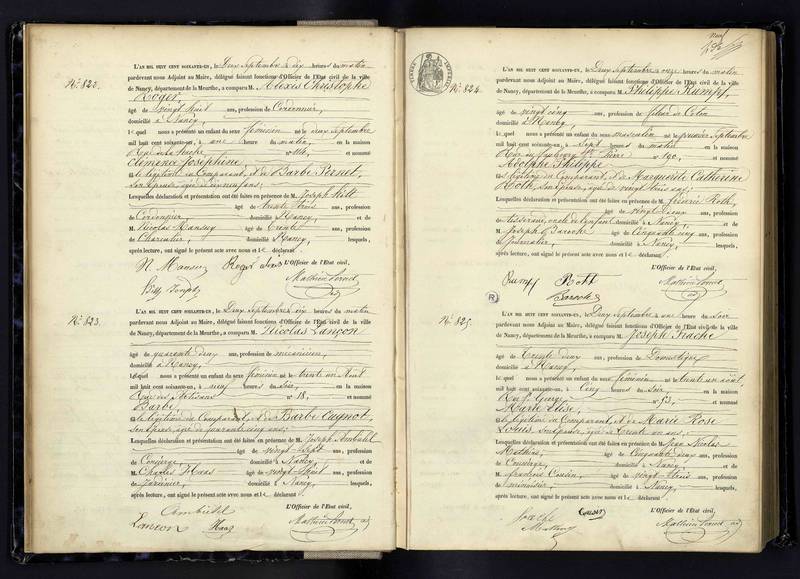 N° 822.
L'AN MIL HUIT CENT SOIXANTE-UN, le Deux Septembre à dix heures du matin
pardevant nous Adjoint au Maire, délégué faisant fonctions d'Officier de l'Etat civil de la ville
de Nancy, département de la Meurthe, a comparu M. Alexis Christophe
Roger,
âgé de vingt huit ans, profession de Cordonnier,
domicilié à Nancy,
lequel nous a présenté un enfant du sexe féminin né le deux septembre
mil huit cent soixante-un, à une heure du matin, en la maison
n° 114, et nommé
Clémence Joséphine
légitime du Comparant, et de Barbe Pernet,
son épouse, âgée de
Lesquelles déclaration et présentation ont été faites en présence de M. Joseph Witt
âgé de trente trois ans, profession
de Cordonnier, domicilié à Nancy, et de
M. Nicolas Mansuy âgé de Trente ans, profession
de Charcutier, domicilié à Nancy, lesquels,
après lecture, ont signé le présent acte avec nous et le déclarant
L'Officier de l'Etat civil,
N. Mansuy Roger
Witt Joseph
N° 823.
L'AN MIL HUIT CENT SOIXANTE-UN, le Deux Septembre à dix heures du matin
pardevant nous Adjoint au Maire, délégué faisant fonctions d'Officier de l'Etat civil de la ville
de Nancy, département de la Meurthe, a comparu M. Nicolas Lançon
âgé de quarante deux ans, profession de mécanicien,
domicilié à Nancy,
lequel nous a présenté un enfant du sexe féminin né le trente un Août
mil huit cent soixante-un, à neuf heures du soir, en la maison
Rue des Artisans n° 18, et nommé
Barbe
légitime du Comparant, et de Barbe Cugnot,
son épouse, âgée de quarante cinq ans;
Lesquelles déclaration et présentation ont été faites en présence de M. Joseph
âgé de vingt sept ans, profession
de Concierge, domicilié à Nancy et de
M. Charles Haas âgé de vingt huit ans, profession
de Jardinier, domicilié à Nancy, lesquels,
après lecture, ont signé le présent acte avec nous et le déclarant
L'Officier de l'Etat civil,
Lançon Haas
N° 824.
L'AN MIL HUIT CENT SOIXANTE-UN, le Deux Septembre à onze heures du matin
pardevant nous Adjoint au Maire, délégué faisant fonctions d'Officier de l'Etat civil de la ville
de Nancy, département de la Meurthe, a comparu M. Philippe Rumpf,
âgé de vingt cinq ans, profession de fileur de Coton
domicilié à Nancy
lequel nous a présenté un enfant du sexe masculin né le premier Septembre
mil huit cent soixante-un, à Sept heures du matin en la maison
Rue du faubourg St Pierre n° 190, et nommé
Adolphe Philippe
fils légitime du Comparant, et de Marguerite Catherine
Roth, son épouse, âgée de vingt trois ans;
Lesquelles déclaration et présentation ont été faites en présence de M. Frédéric Roth,
âgé de vingt deux ans, profession
de tisserand, oncle de l'enfant domicilié à Nancy et de
M. Joseph Baroche âgé de Cinquante cinq ans, profession
de Journalier, domicilié à Nancy, lesquels,
après lecture, ont signé le présent acte avec nous et le déclarant
L'Officier de l'Etat civil,
Rumpf Roth
Baroche
R
N° 825.
L'AN MIL HUIT CENT SOIXANTE-UN, le Deux Septembre à une heure du soir
pardevant nous Adjoint au Maire, délégué faisant fonctions d'Officier de l'Etat civil de la ville
de Nancy, département de la Meurthe, a comparu M. Joseph
âgé de Trente deux ans, profession de Domestique
domicilié à Nancy,
lequel nous a présenté un enfant du sexe féminin né le trente un août,
mil huit cent soixante-un, à Cinq heures du soir, en la maison
Rue St George n° 53, et nommé
Marie Élise,
légitime du Comparant, et de Marie Rose
son épouse, âgée de trente un ans;
Lesquelles déclaration et présentation ont été faites en présence de M. Jean Nicolas
Mathieu, âgé de Cinquante deux ans, profession
de Concierge, domicilié à Nancy, et de
M. François Cousin, âgé de vingt trois ans, profession
de menuisier, domicilié à Nancy, lesquels,
après lecture, ont signé le présent acte avec nous et le déclarant
L'Officier de l'Etat civil,
Cousin